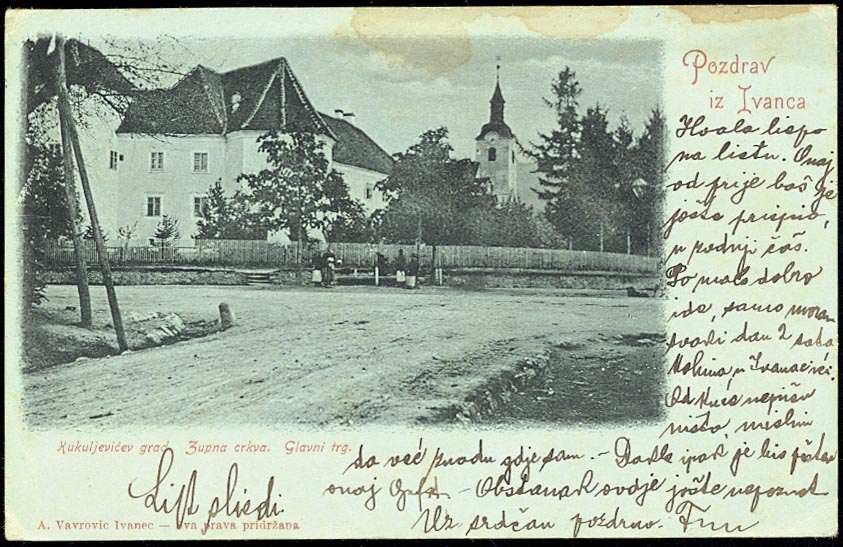 Pozdrav
iz Ivanca
Hvala liepo
na listu. Onaj
od prije baš je
jošte prispio,
u zadnji čas.
Po malo dobro
ide, samo moram
svaki dan 2 sata
u Ivanac ići.
Od kuće nepišu
ništa, mislim
Kukuljevićev grad. Župna crkva. Glavni trg.
da već znadu gdje sam. - Dakle ipak je bio
onaj - Obstanak ovdje jošte nepoznat
Uz srdčan pozdrav.
List sliedi.
A. Vavrovic Ivanec — Sva prava pridržana